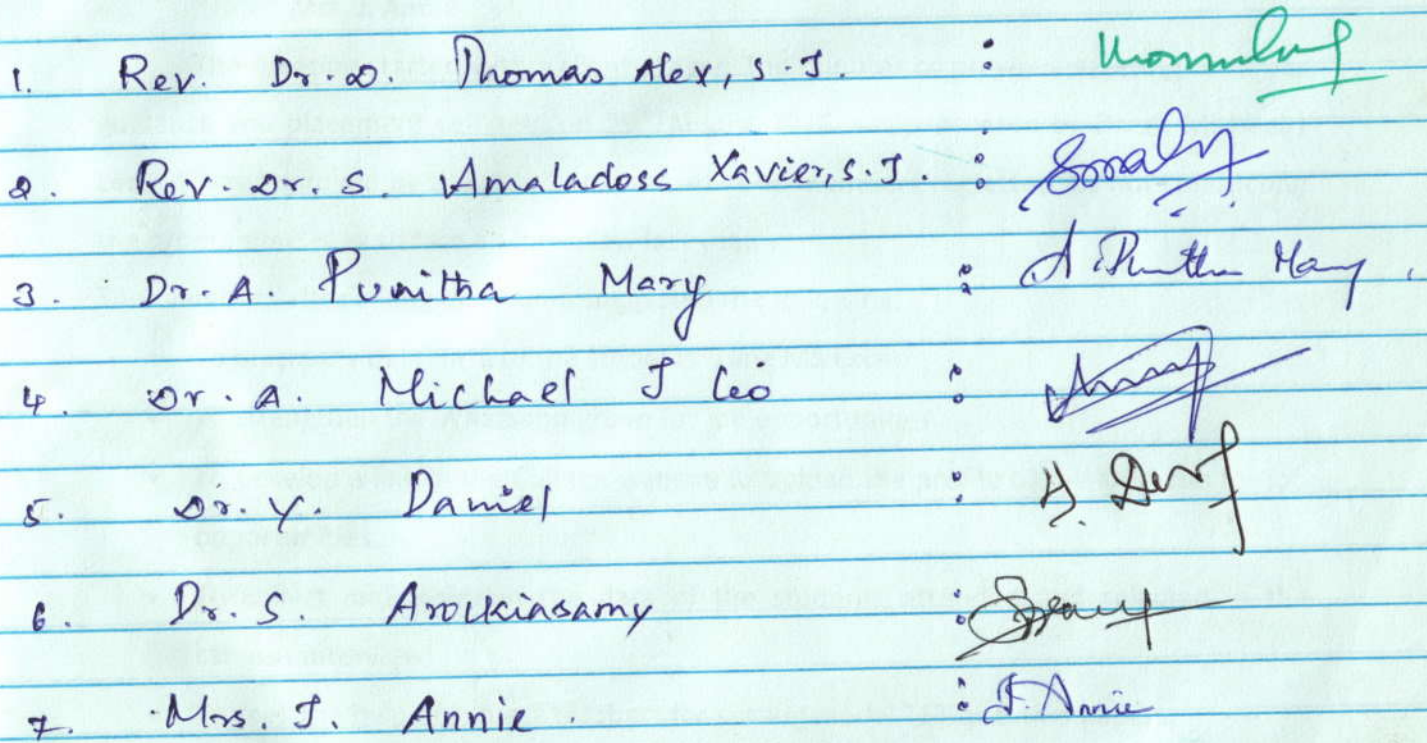 1. Rev. Dr. D. Thomas Alex, S.J. :
2. Rev. Dr. S. Amaladoss Xavier, S.J. :
3. Dr. A. Punitha Mary : A. Punitha Mary
4. Dr. A. Michael J Leo :
5. Dr. Y. Daniel :
6. Dr. S. Arockiasamy :
7. Mrs. J. Annie. : J. Annie